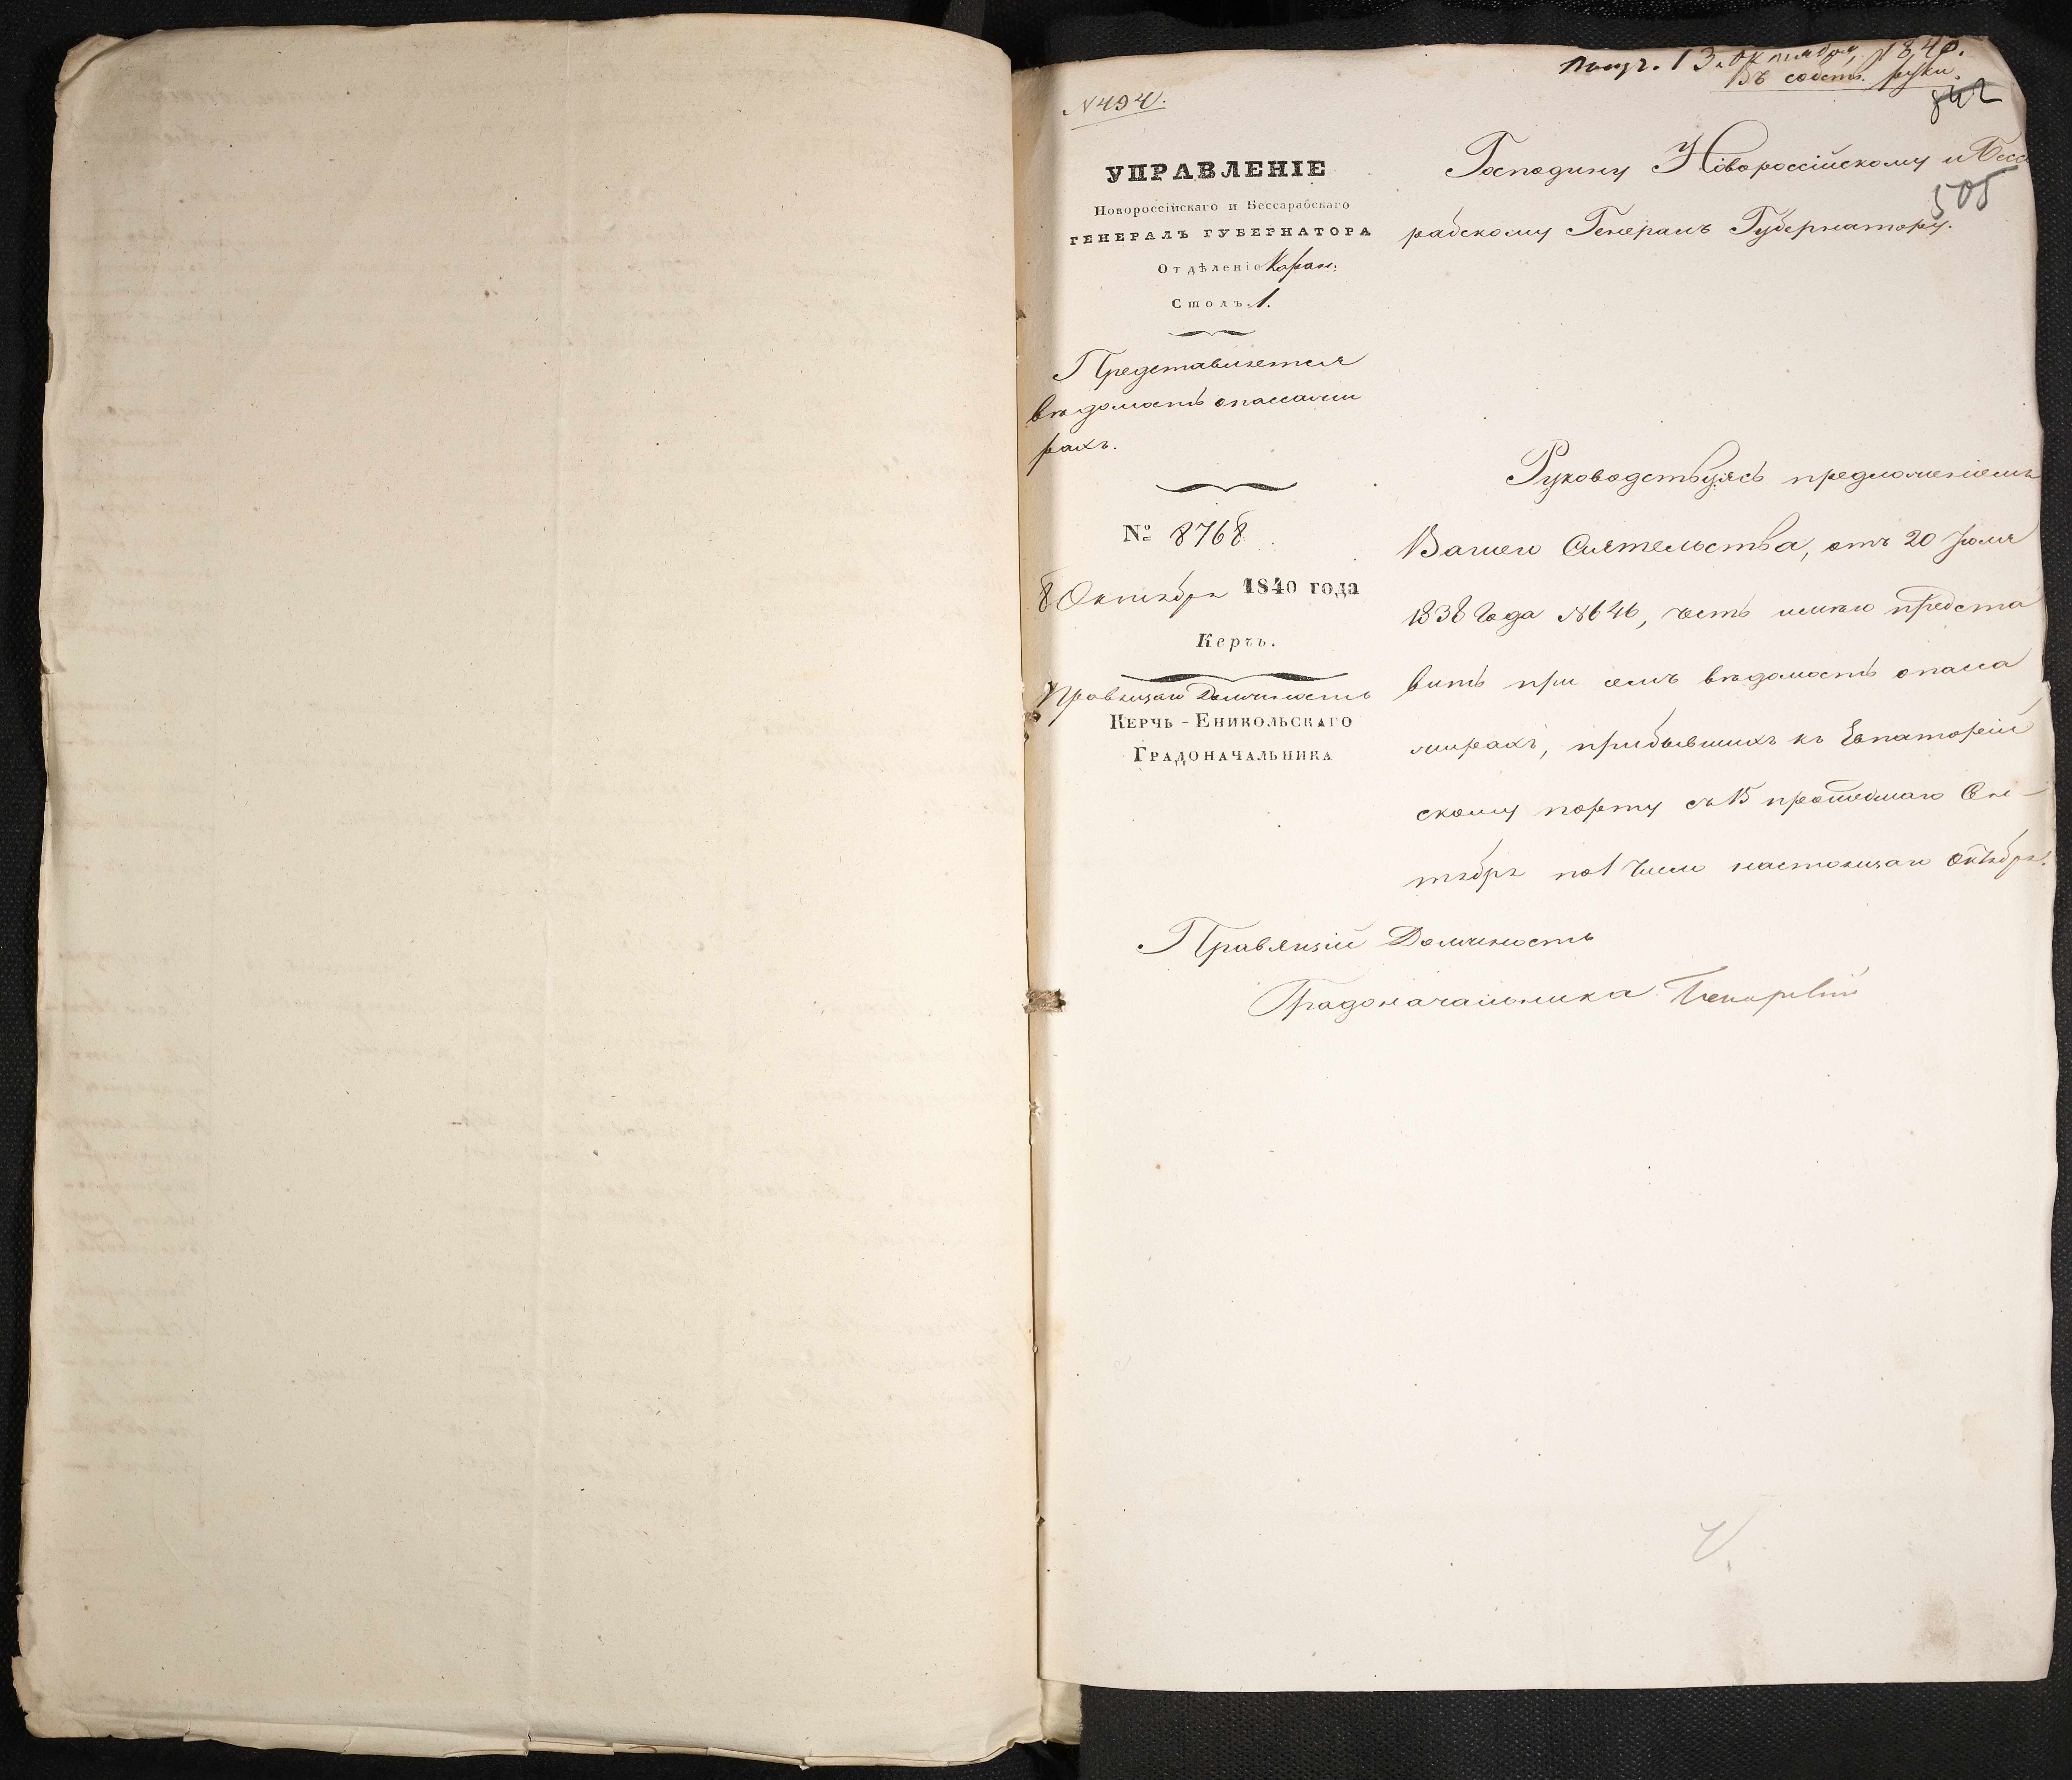 Получ. 13. Октября, 1840.
Въ собств. руки.
N 494.
842
505
УПРАВЛЕНІЕ
Новороссійскаго и Бессарабскаго
ГЕНЕРАЛЪ ГУБЕРНАТОРА
Отдѣленіе Каран:
Столъ 1.
Представляется
вѣдомость опассажи
рахъ.
№ 8768
8 Октября 1840 года
Керчь.
Правящаго Должность
КЕРЧЬ-ЕНИКОЛЬСКАГО
ГРАДОНАЧАЛЬНИКА
Господину Новороссійскому и Бесса
рабскому Генералъ Губернатору.
Руководствуясь предложеніемъ
Вашего Сіятельства, отъ 20 Іюля
1838 Года N 646, честь имѣю предста
вить при семъ вѣдомость опасса
жирахъ, прибывшихъ къ Евпаторій
скому порту съ 15 прошедшаго Сен-
тября по 1 Число настоящаго Октября.
Правящій Должность
Градоначальника